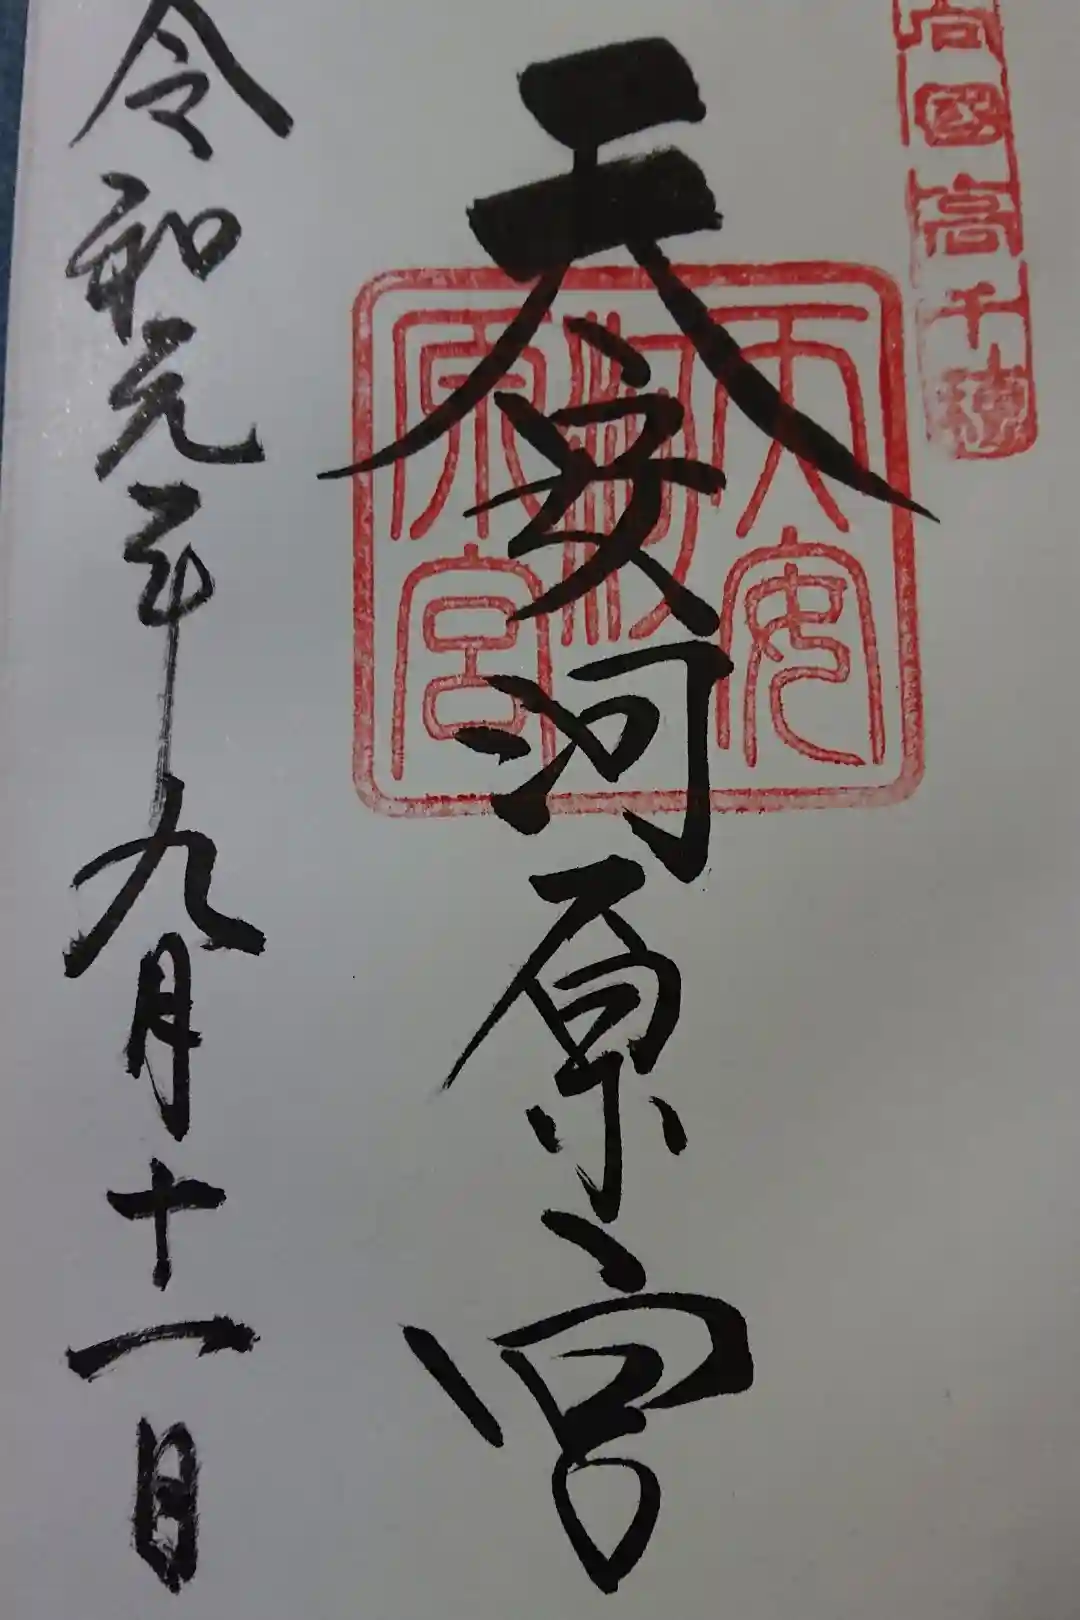 向國高千穂
天安河原宮
天安
河
原宮
令和元年九月十一日